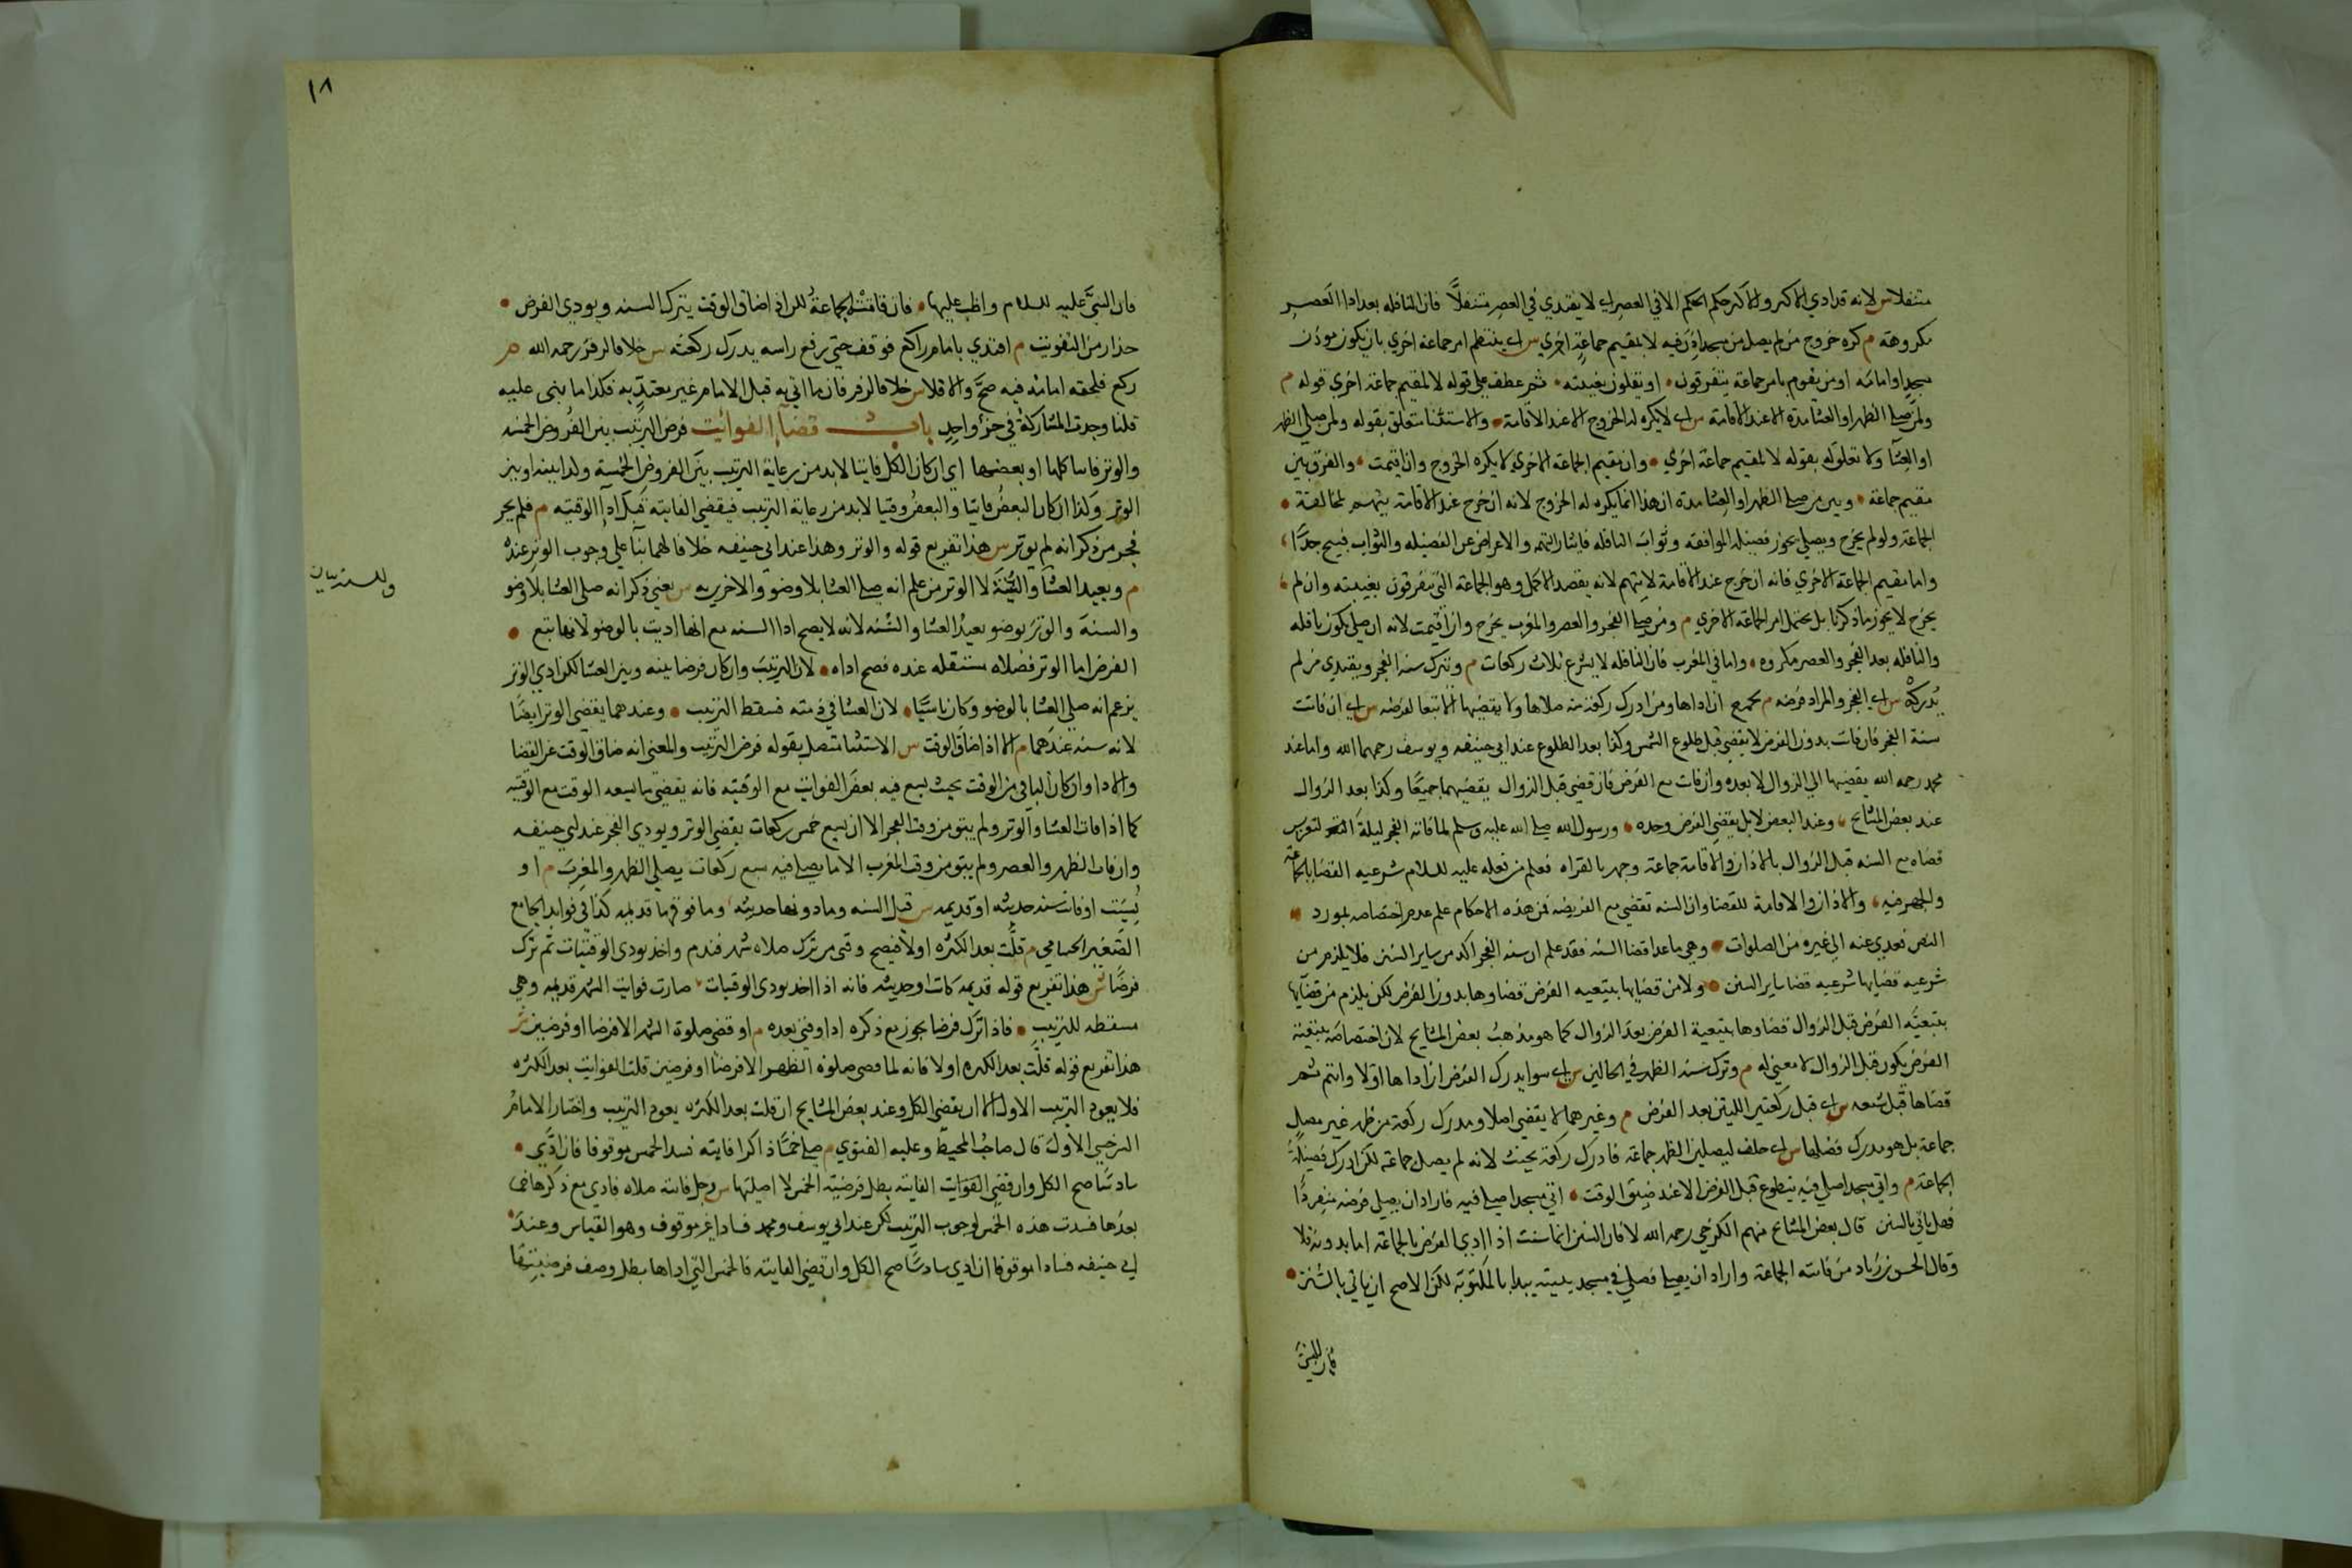 متنفلا س لانه قد ادي الاكثر وللاكثر حكم الكل الا في العصر اي لا يقتدي في العصر متنفلاً فان النافله بعد ادا العصر
مكروهة م كره خروج من لم يصل من مسجد اذن فيه لا لمقيم جماعة اخري س اي ينتظم امر جماعة اخري بان يكون موذن
مسجد او امامه او من يقوم بامر جماعة يتفرقون او يقلون بغيبته ثم عطف علي قوله لا لمقيم جماعة اخري قوله م
ولمن صلي الظهر او العشا مرة الا عند الاقامة س اي لا يكره له الخروج الا عند الاقامة والاستثنا متعلق بقوله ولمن صلي الظهر
او العشا ولا تعلق له بقوله لا لمقيم جماعة اخري وان مقيم الجماعة الاخري لا يكره الخروج وان اقيمت والفرق بين
مقيم جماعة وبين من صلي الظهر او العشا مرة ان هذا انما يكره له الخروج لانه ان خرج عند الاقامة يتهم بمخالفة
الجماعة ولو لم يخرج ويصلي يحوز فضيلة الموافقه وثواب النافله فايثار التهم والاعراض عن الفضيله والثواب قبيح جدًّا
واما مقيم الجماعة الاخري فانه ان خرج عند الاقامة لا يتهم لانه يقصد الاكمل وهو الجماعة التي تتفرقون بغيبته وان لم
يخرج لا يحوز ما ذكرنا بل يختل امر الجماعة الاخري م ومن صلي الفجر والعصر والمغرب يخرج وان اقيمت لانه ان صلي يكون نافله
والنافله بعد الفجر والعصر مكروه واما في المغرب فان النافله لا يشرع ثلاث ركعات م ويترك سنة الفجر ويقتدي من لم
يدركه س اي الفجر والمراد فرضه م بجمع ان اداها ومن ادرك ركعة منه صلاها ولا يقضيها الا تبعا لفرضه س اي ان فاتت
سنة الفجر فان فات بدون الفرض لا يقضي قبل طلوع الشمس وكذا بعد الطلوع عند ابي حنيفه وبوسف رحمهما الله واما عند
محمد رحمه الله يقضيها الي الزوال لا بعده وان فات مع الفرض فان قضي قبل الزوال يقضيهما جميعًا وكذا بعد الزوال
عند بعض المشايخ وعند البعض لا بل يقضي الفرض وحده ورسول الله صلي الله عليه وسلم لما فاته الفجر ليلة التعريس
قضاه مع السنه قبل الزوال بالاذان والاقامة جماعة وجهر بالقراه فعلم من فعله عليه السلام شرعيه القضا بالجماعة
والجهر فيه والاذان والاقامة للقضا وان السنه تقضي مع الفريضه فمن هذه الاحكام علم عدم اختصاصه بمورد
النص فعدي عنه الي غيره من الصلوات وهي ما عدا قضا السنه فقد علم ان سنه الفجر اكد من ساير السنن فلا يلزم من
شرعيه قضايها شرعيه قضا ساير السنن ولا من قضايها بتبعيه الفرض قضاوها بدون الفرض لكن يلزم من قضايها
بتبعيّه الفرض قبل الزوال قضاوها بتبعية الفرض بعد الزوال كما هو مذهب بعض المشايخ لان اختصاصه بتبعية
الفرض بكون قبل الزوال لا معني له م وترك سنة الظهر في الحالين س اي سوا يدرك الفرض ان اداها اولا وايتم ثم
قضاها قبل شفعه س اي قبل ركعتين اللتين بعد الفرض م وغيرهما لا يقضي اصلا ومدرك ركعة من ظهر غير مصل
جماعة بل هو مدرك فضلها س اي حلف ليصلين الظهر جماعة فادرك ركعة يحنث لانه لم يصل جماعة لكن ادرك فضيلة
الجماعة م واتي مسجد اصلي فيه يتطوع قبل الفرض الا عند ضيق الوقت اتي مسجدا صلي فيه فاراد ان يصلي فرضه منفردًا
فهل ياتي بالسنن قال بعض المشايخ منهم الكرخي رحمه الله لا فان السنن انما سنت اذا ادي الفرض بالجماعة اما بدونه فلا
وقال الحسن بن زياد من فاتته الجماعة واراد ان يصلي فصلي في مسجد بيته يبدا بالمكتوبة لكن الاصح ان ياتي بالسنن
فان النبي
١٨
فان النبيّ عليه السلام واظب عليها فان فاتته الجماعة للن اذا ضاق الوقت يترك السنه ويودي الفرض
حذارا من التفويت م اقتدي بامام راكع فوقف حتي رفع راسه لم يدرك ركعته س خلافا لزفر رحمه الله م
ركع فلحقه امامه فيه صحّ والا فلا س خلافا لزفر فان ما اتي به قبل الامام غير معتدّ به فكذا ما بني عليه
قلنا وجدت المشاركة في جزء واحد باب قضا الفوائت فرض الترتيب بين الفروض الخمسه
والوتر فايتا كلها او بعضها اي ان كان الكل فايتا لا بد من رعاية الترتيب بين الفروض الخمسة ولذا بينه او بين
الوتر وكذا ان كان البعض فايتا والبعض وقتيا لا بد من رعاية الترتيب فيقضي الفايته قبل ادا الوقتيه م فلم يجز
فجر من ذكر انه لم يوتر س هذا تفريع قوله والوتر وهذا عند ابي حنيفه خلافا لهما بنا علي وجوب الوتر عنده
م ويعيد العشا والسنة لا الوتر من علم انه صلي العشا بلا وضوّ والاخريين به س يعني ذكر انه صلي العشا بلا وضو
والسنة والوتر بوضو يعيد العشا والسنه لانه لا يصح ادا السنه مع انها اديت بالوضو لانها تبع
الفرض اما الوتر فصلاه مستقله عنده فصح اداه لان الترتيب وان كان فرضا بينه وبين العشا لكن ادي الوتر
بزعم انه صلي العشا بالوضو وكان ناسيًا لان العشا في ذمته فسقط الترتيب وعندهما يقضي الوتر ايضًا
لانه سنه عندهما م الا اذا ضاق الوقت س الاستثنا متصل بقوله فرض الترتيب والمعني انه ضاق الوقت عن القضا
والادا وان كان الباقي من الوقت بحيث يسع فيه بعض الفوايت مع الوقتيه فانه يقضي ما يسعه الوقت مع الوقتيه
كما اذا فات العشا والوتر ولم يبق من وقت الفجر الا ان يسع خمس ركعات يقضي الوتر ويودي الفجر عند ابي حنيفه
وان فات الظهر والعصر ولم يبق من وقت المغرب الا ما يصلي فيه سبع ركعات يصلي الظهر والمغرب م او
نسيت او فات سته حديثه او قديمه س قيل السنه وما دونها حديثه وما فوقها قديمه كذا في فوايد الجامع
الصغير الحسامي م قلّت بعد الكثره اولا فيصح وقتي من ترك صلاه شهر فندم واخذ يودي الوقتيات ثم ترك
فرضًا س هذا تفريع قوله قديمه كانت او حديثه فانه اذا اخذ يودي الوقتيات صارت فوايت الشهر قديمه وهي
مسقطه للترتيب فاذا ترك فرضا يجوز مع ذكره ادا وقتي بعده م او قضي صلوة الشهر الا فرضا او فرضين س
هذا تفريع قوله قلّت بعد الكثره اولا فانه لما قضي صلوة الظهر الا فرضا او فرضين قلت الفوايت بعد الكثره
فلا يعود الترتيب الاول الا ان يقضي الكل وعند بعض المشايخ ان قلت بعد الكثره يعود الترتيب واختار الامام
السرخسي الاول قال صاحب المحيط وعليه الفتوي م صلي خمسًا ذاكرا فايته فسد الخمس موقوفا فان ادّي
سادسًا صح الكل وان قضي الفوايت الفايته بطل فرضيه الخمس لا اصليتها س رجل فاتته صلاه فادي مع ذكرها خمسا
بعدها فسدت هذه الخمس لوجوب الترتيب لكن عند ابي يوسف ومحمد فسادا غير موقوف وهو القياس وعند
ابي حنيفه فسادا موقوفا ان ادي سادسًا صح الكل وان قضي الفايته فالخمس التي اداها بطل وصف فرضيتها